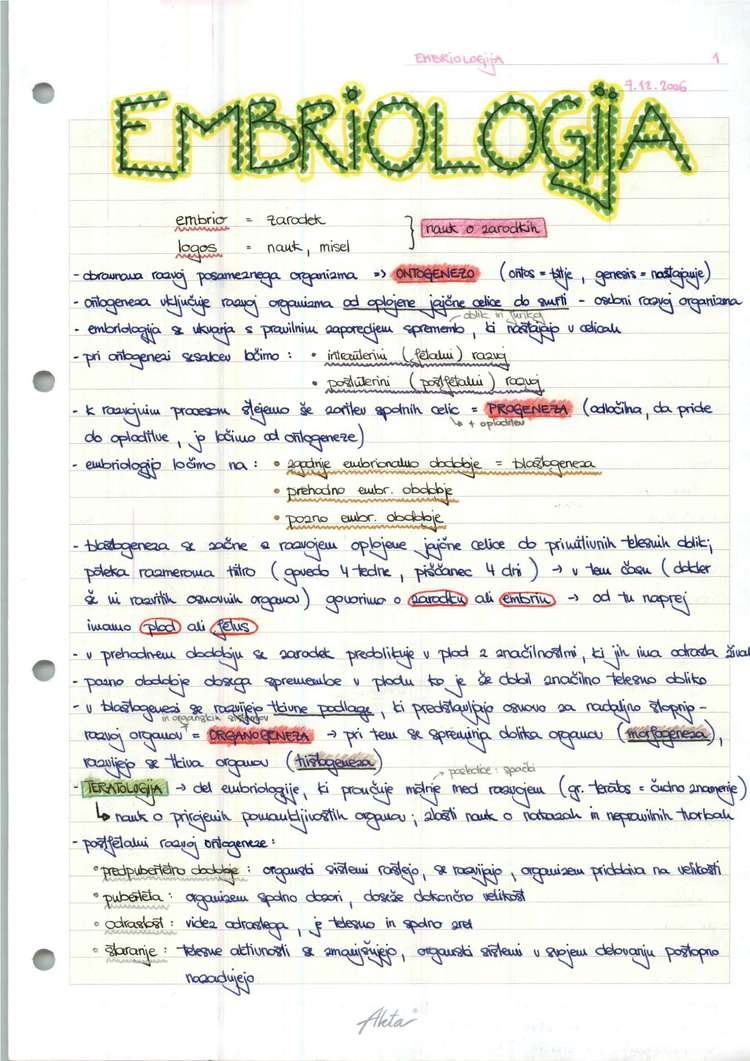 EMBRIOLOGIJA 1
7.12.2006
EMBRIOLOGIJA
embrio = zarodek
logos = nauk, misel
nauk o zarodkih
- obravnava razvoj posameznega organizma => ONTOGENEZO (ontos = bitje, genesis = nastajanje)
- ontogeneza vključuje razvoj organizma od oplojene jajčne celice do smrti - osebni razvoj organizma
oblik in funkcij
- embriologija se ukvarja s pravilnim zaporedjem sprememb, ki nastajajo v celicah
- pri ontogenezi sesalcev ločimo : • intrauterini (fetalni) razvoj
• postuterini (postfetalni) razvoj
- k razvojnim procesom štejemo še zoritev spolnih celic = PROGENEZA (odločilna, da pride
+ oploditev
do oploditve, jo ločimo od ontogeneze)
- embriologijo ločimo na : • zgodnje embrionalno obdobje = blastogeneza
• prehodno embr. obdobje
• pozno embr. obdobje
- blastogeneza se začne z razvojem oplojene jajčne celice do primitivnih telesnih oblik;
poteka razmeroma hitro (govedo 4 tedne, piščanec 4 dni) → v tem času (dokler
še ni razvitih osnovnih organov) govorimo o zarodku ali embriu → od tu naprej
imamo plod ali fetus
- v prehodnem obdobju se zarodek preoblikuje v plod z značilnostmi, ki jih ima odrasla žival
- pozno obdobje obsega spremembe v plodu ko je še dobil značilno telesno obliko
- v blastogenezi se razvijejo tkivne podlage, ki predstavljajo osnovo za nadaljno stopnjo -
in organskih sistemov
razvoj organov = ORGANOGENEZA → pri tem se spreminja oblika organov (morfogeneza),
razvijejo se tkiva organov (histogeneza)
posledice : spački
- TERATOLOGIJA → del embriologije, ki proučuje motnje med razvojem (gr. teratos = čudno znamenje)
↳ nauk o prirojenih pomanjkljivostih organov ; zlasti nauk o nakazah in nepravilnih tvorbah
- postfetalni razvoj ontogeneze :
• predpubertetno obdobje : organski sistemi rastejo, se razvijajo, organizem pridobiva na velikosti
• puberteta : organizem spolno dozori, doseže dokončno velikost
• odraslost : videz odraslega, je telesno in spolno zrel
• staranje : telesne aktivnosti se zmanjšujejo, organski sistemi v svojem delovanju postopno
nazadujejo
Akta